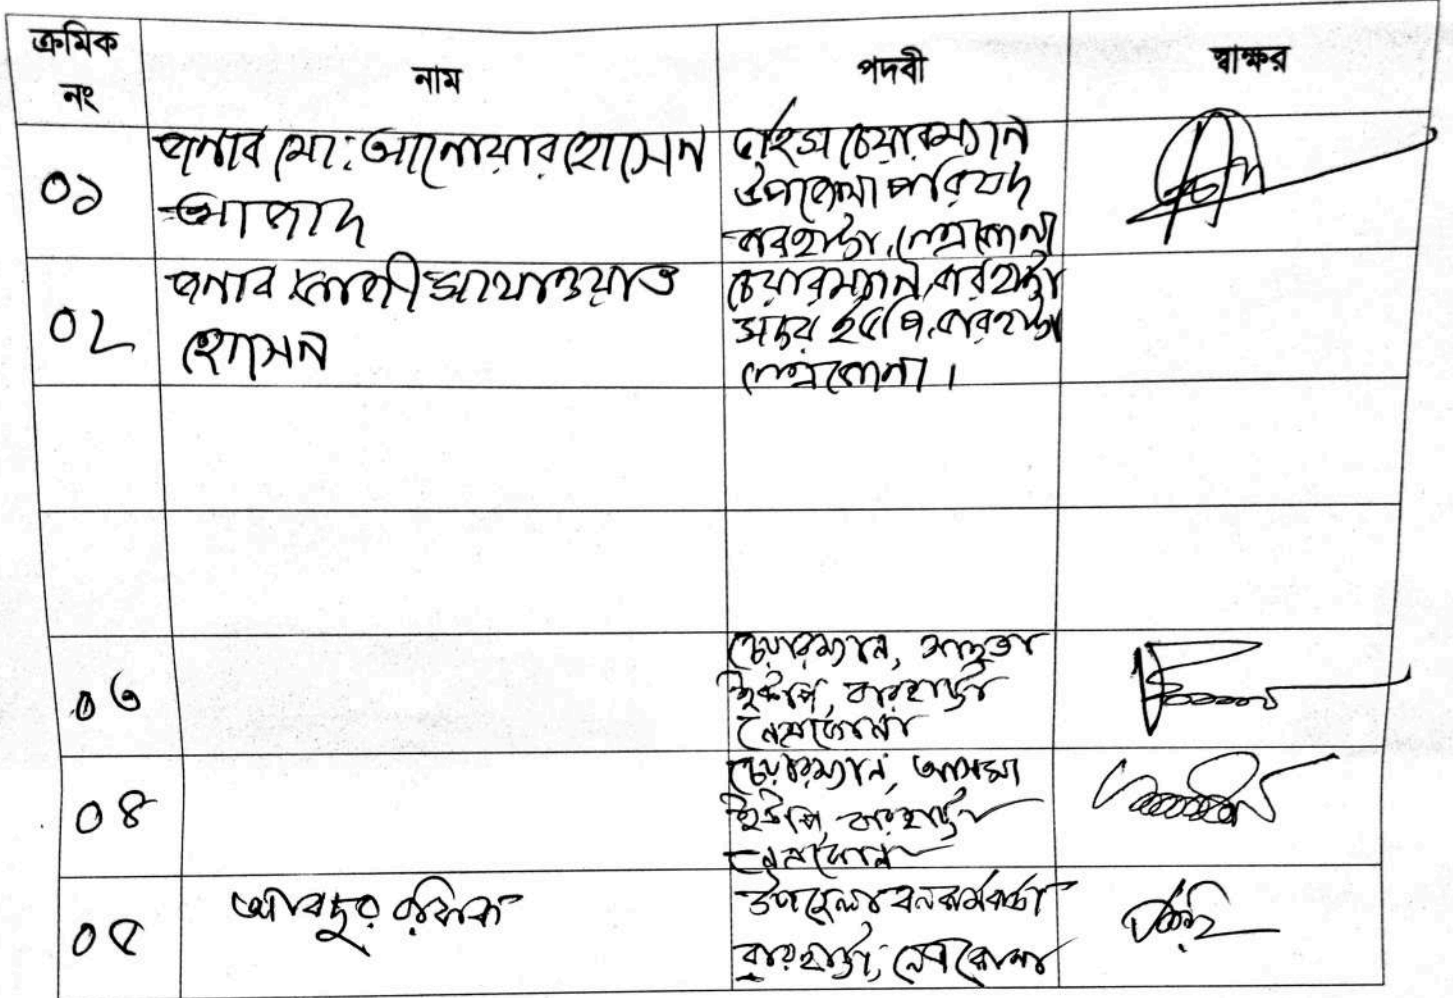 ক্রমিক নং
নাম
পদবী
স্বাক্ষর
০১
জনাব মো: আনোয়ার হোসেন
আজাদ
ভাইস চেয়ারম্যান
উপজেলা পরিষদ
বারহাট্টা, নেত্রকোনা
০২
জনাব কাজী সাখাওয়াত
হোসেন
চেয়ারম্যান, বারহাট্টা
সদর ইউপি, বারহাট্টা
নেত্রকোনা।
০৩
চেয়ারম্যান, সাহতা
ইউপি, বারহাট্টা
নেত্রকোনা
০৪
চেয়ারম্যান, আসমা
ইউপি, বারহাট্টা
নেত্রকোনা
০৫
আবদুর রফিক
উপজেলা বনকর্মকর্তা
বারহাট্টা, নেত্রকোনা